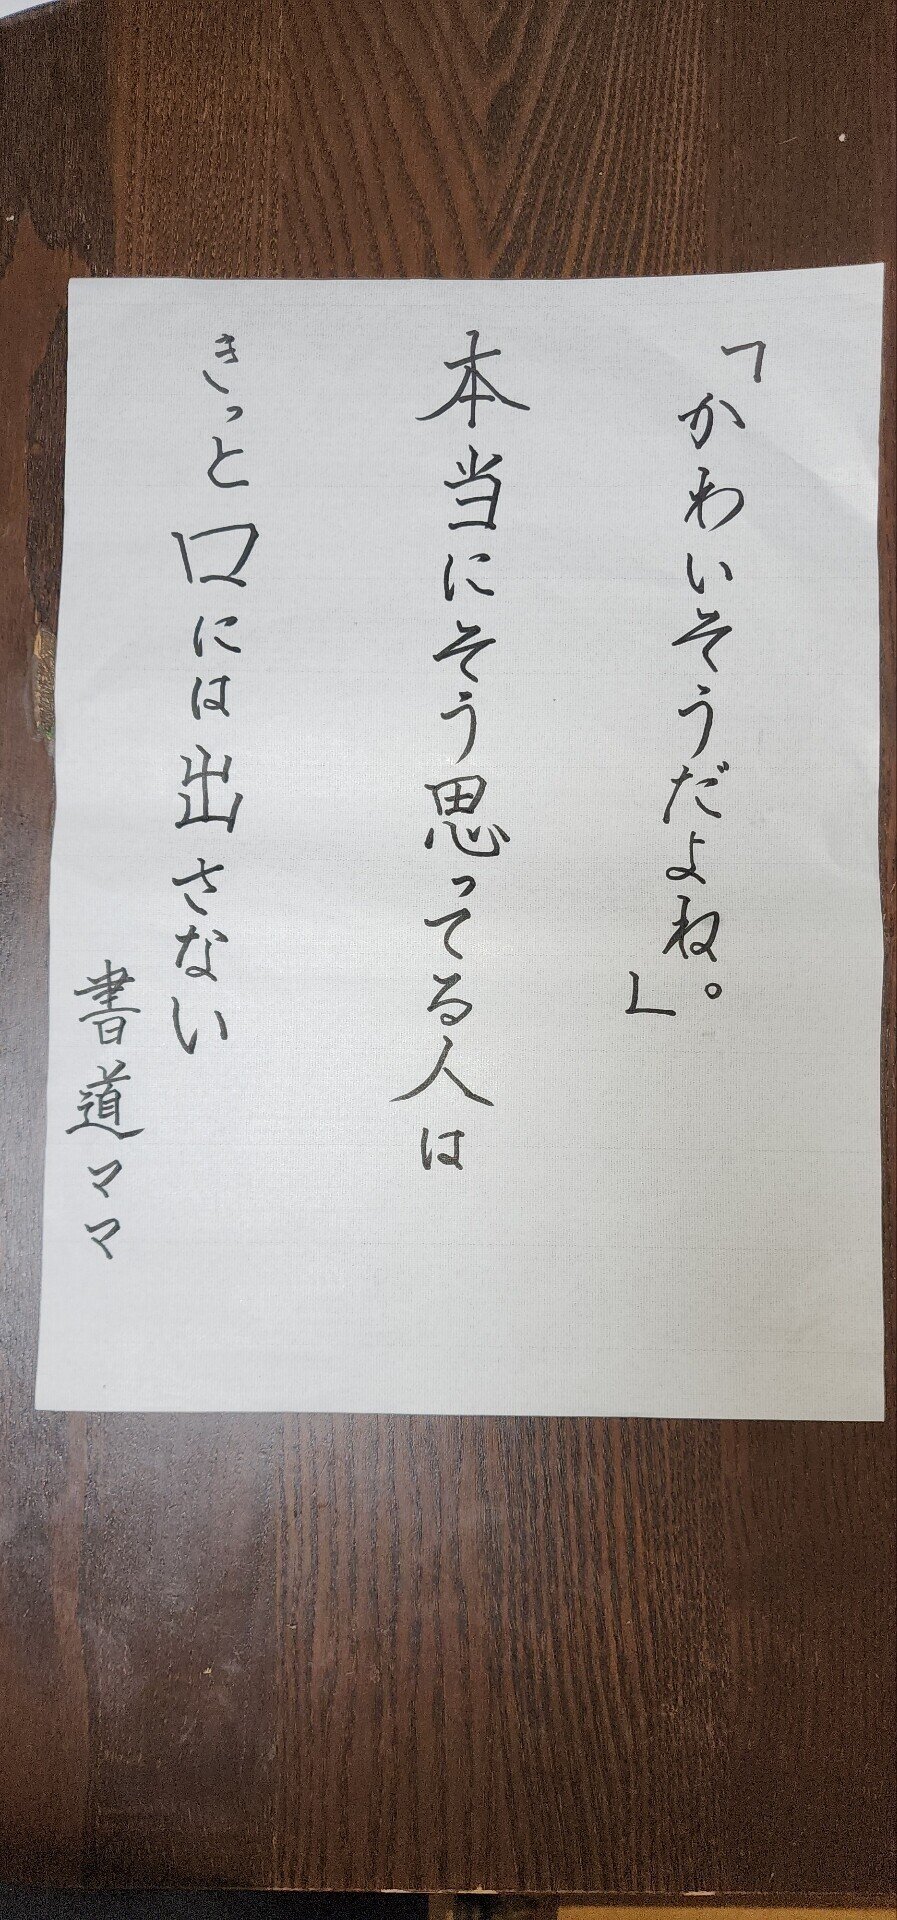 「かわいそうだよね。」
本当にそう思ってる人は
きっと口には出さない
書道ママ